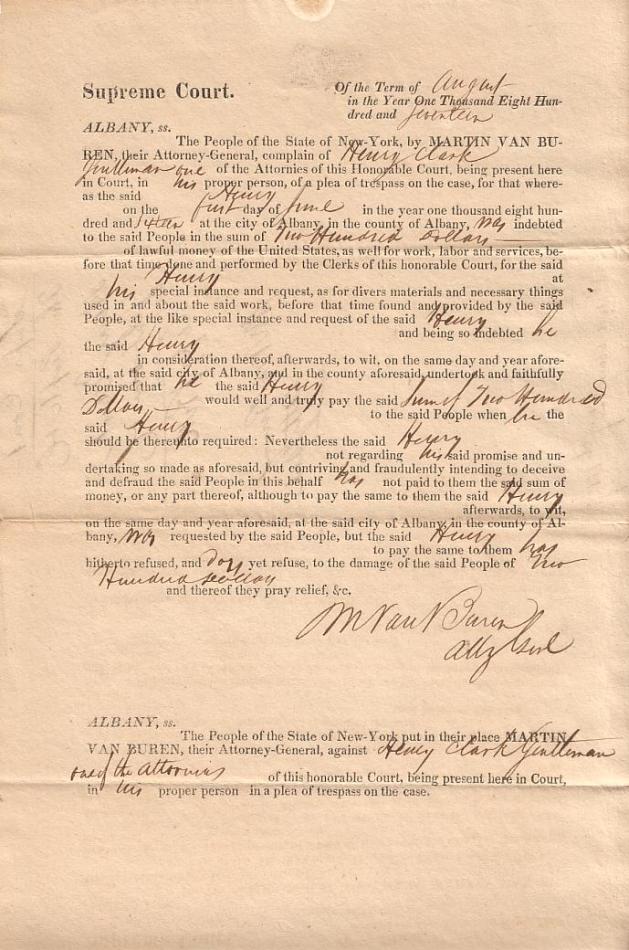 Supreme Court.
Of the Term of August
in the Year One Thousand Eight Hun-
dred and seventeen
ALBANY, ss.
The People of the State of New-York, by MARTIN VAN BU-
REN, their Attorney-General, complain of Henry Clark
Gentleman one of the Attornies of this Honorable Court, being present here
in Court, in his proper person, of a plea of trespass on the case, for that where-
as the said Henry
on the first day of June in the year one thousand eight hun-
dred and sixteen at the city of Albany, in the county of Albany, was indebted
to the said People in the sum of Two Hundred Dollars
of lawful money of the United States, as well for work, labor and services, be-
fore that time done and performed by the Clerks of this honorable Court, for the said
Henry at
his special instance and request, as for divers materials and necessary things
used in and about the said work, before that time found and provided by the said
People, at the like special instance and request of the said Henry
and being so indebted he
the said Henry
in consideration thereof, afterwards, to wit, on the same day and year afore-
said, at the said city of Albany, and in the county aforesaid, undertook and faithfully
promised that he the said Henry
would well and truly pay the said Sum of Two Hundred
Dollars to the said People when he the
said Henry
should be thereunto required: Nevertheless the said Henry
not regarding his said promise and un-
dertaking so made as aforesaid, but contriving and fraudulently intending to deceive
and defraud the said People in this behalf has not paid to them the said sum of
money, or any part thereof, although to pay the same to them the said Henry
afterwards, to wit,
on the same day and year aforesaid, at the said city of Albany, in the county of Al-
bany, was requested by the said People, but the said Henry
to pay the same to them has
hitherto refused, and doth yet refuse, to the damage of the said People of Two
Hundred Dollars
and thereof they pray relief, &c.
M Van Buren
Atty Genl
ALBANY, ss.
The People of the State of New-York put in their place MARTIN
VAN BUREN, their Attorney-General, against Henry Clark Gentleman
one of the Attornies of this honorable Court, being present here in Court,
in his proper person in a plea of trespass on the case.